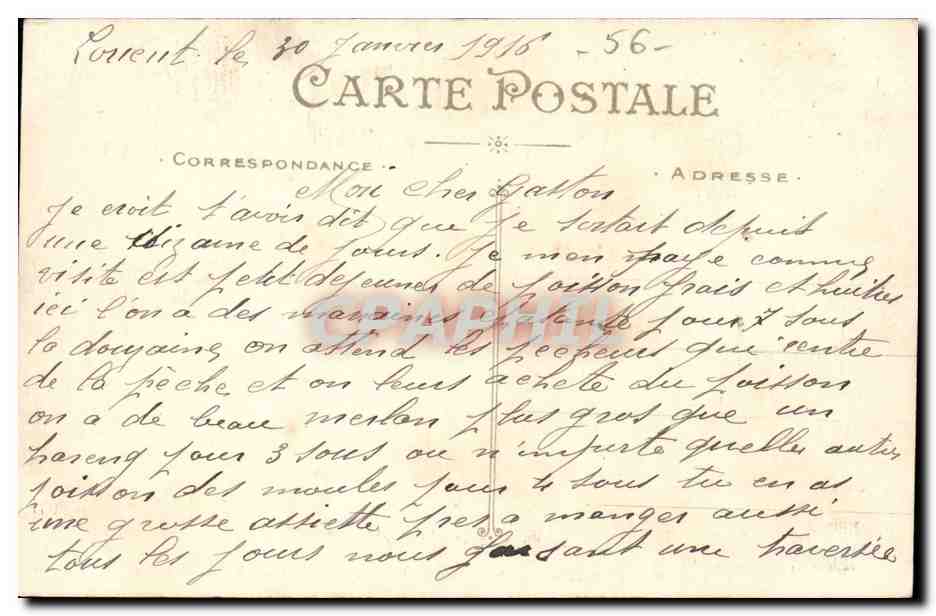 Lorient le 30 Janvier 1916 - 56 -
CARTE POSTALE
CORRESPONDANCE
ADRESSE
Mon cher Gaston
Je croit t'avoir dit que je sortait depuit
une dizaine de jours. Je men paye comme
visite est petit dejeuner de poisson frais et huitres
ici l'on a des marains épatante pour 7 sous
la douzaine, on attend les pecheurs qui rentre
de la pêche et on leurs achete du poisson
on a de beau merlan plus gros que un
hareng pour 3 sous ou n'importe quelles autres
poisson des moules pour 4 sous tu en as
une grosse assiette pres a manger aussi
tous les jours nous faisant une traversée
CPAPHIL